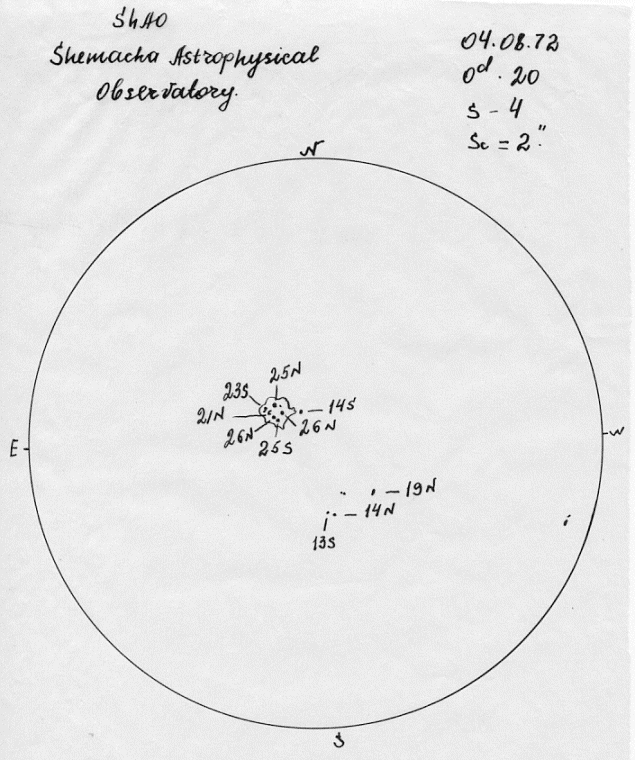 ShAO
Shemacha Astrophysical
Observatory.
04.08.72
0d. 20
S - 4
Sc = 2"
N
25N
23S
14S
21N
26N
26N
25S
E
W
19N
14N
13S
S